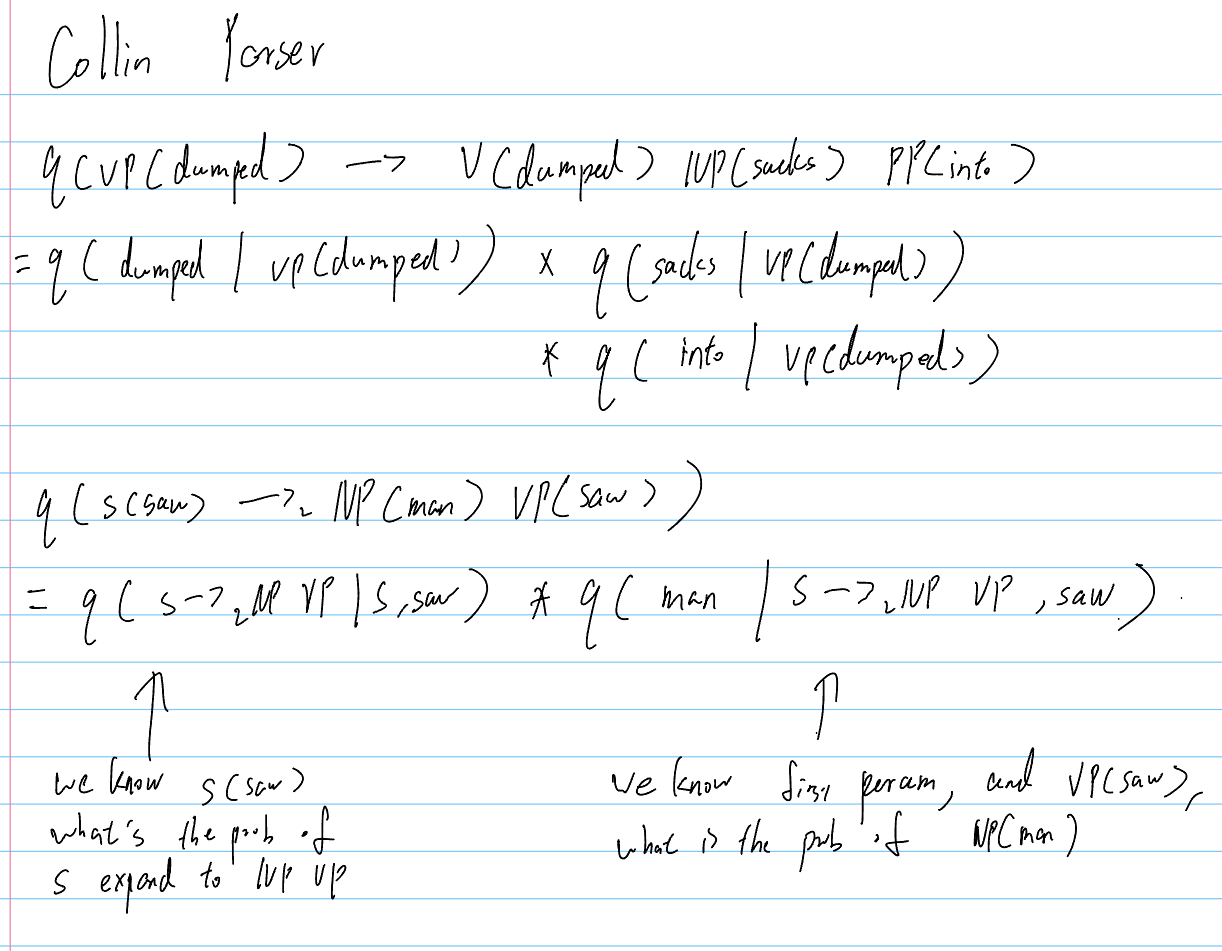 Collin Parser
q(VP(dumped) → V(dumped) NP(sacks) PP(into)
= q(dumped | VP(dumped)) * q(sacks | VP(dumped))
* q(into | VP(dumped))
q(S(saw) →₂ NP(man) VP(saw))
= q(S →₂ NP VP | S, saw) * q(man | S →₂ NP VP, saw).
we know S(saw)
what's the prob of
S expand to NP VP
we know first param, and VP(saw),
what is the prob of NP(man)